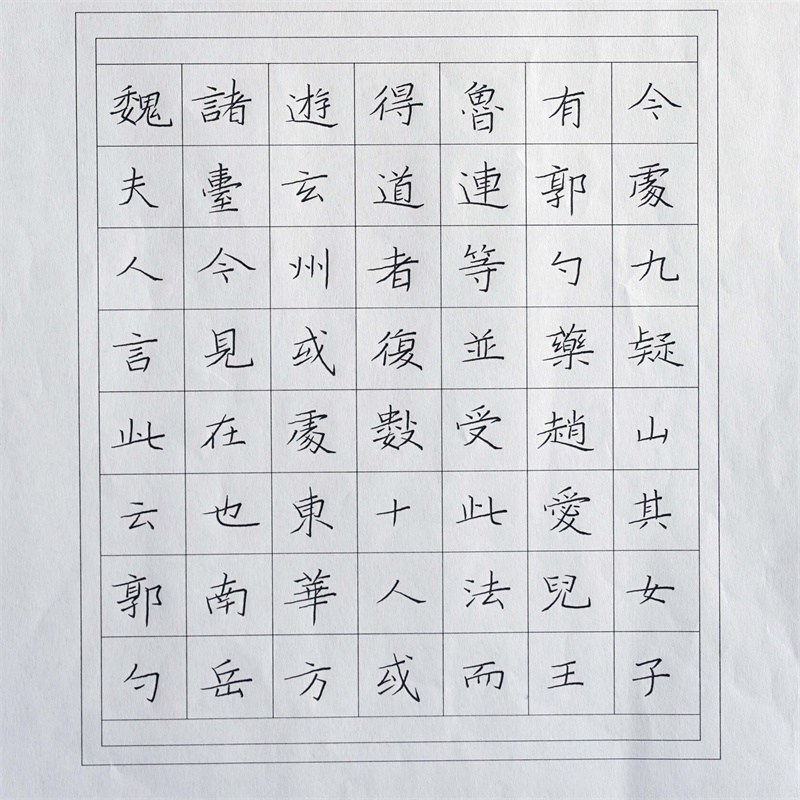 今處九疑山其女子
有郭勺藥趙愛兒王
魯連等並受此法而
得道者復數十人或
遊玄州或處東華方
諸臺今見在也南岳
魏夫人言此云郭勺